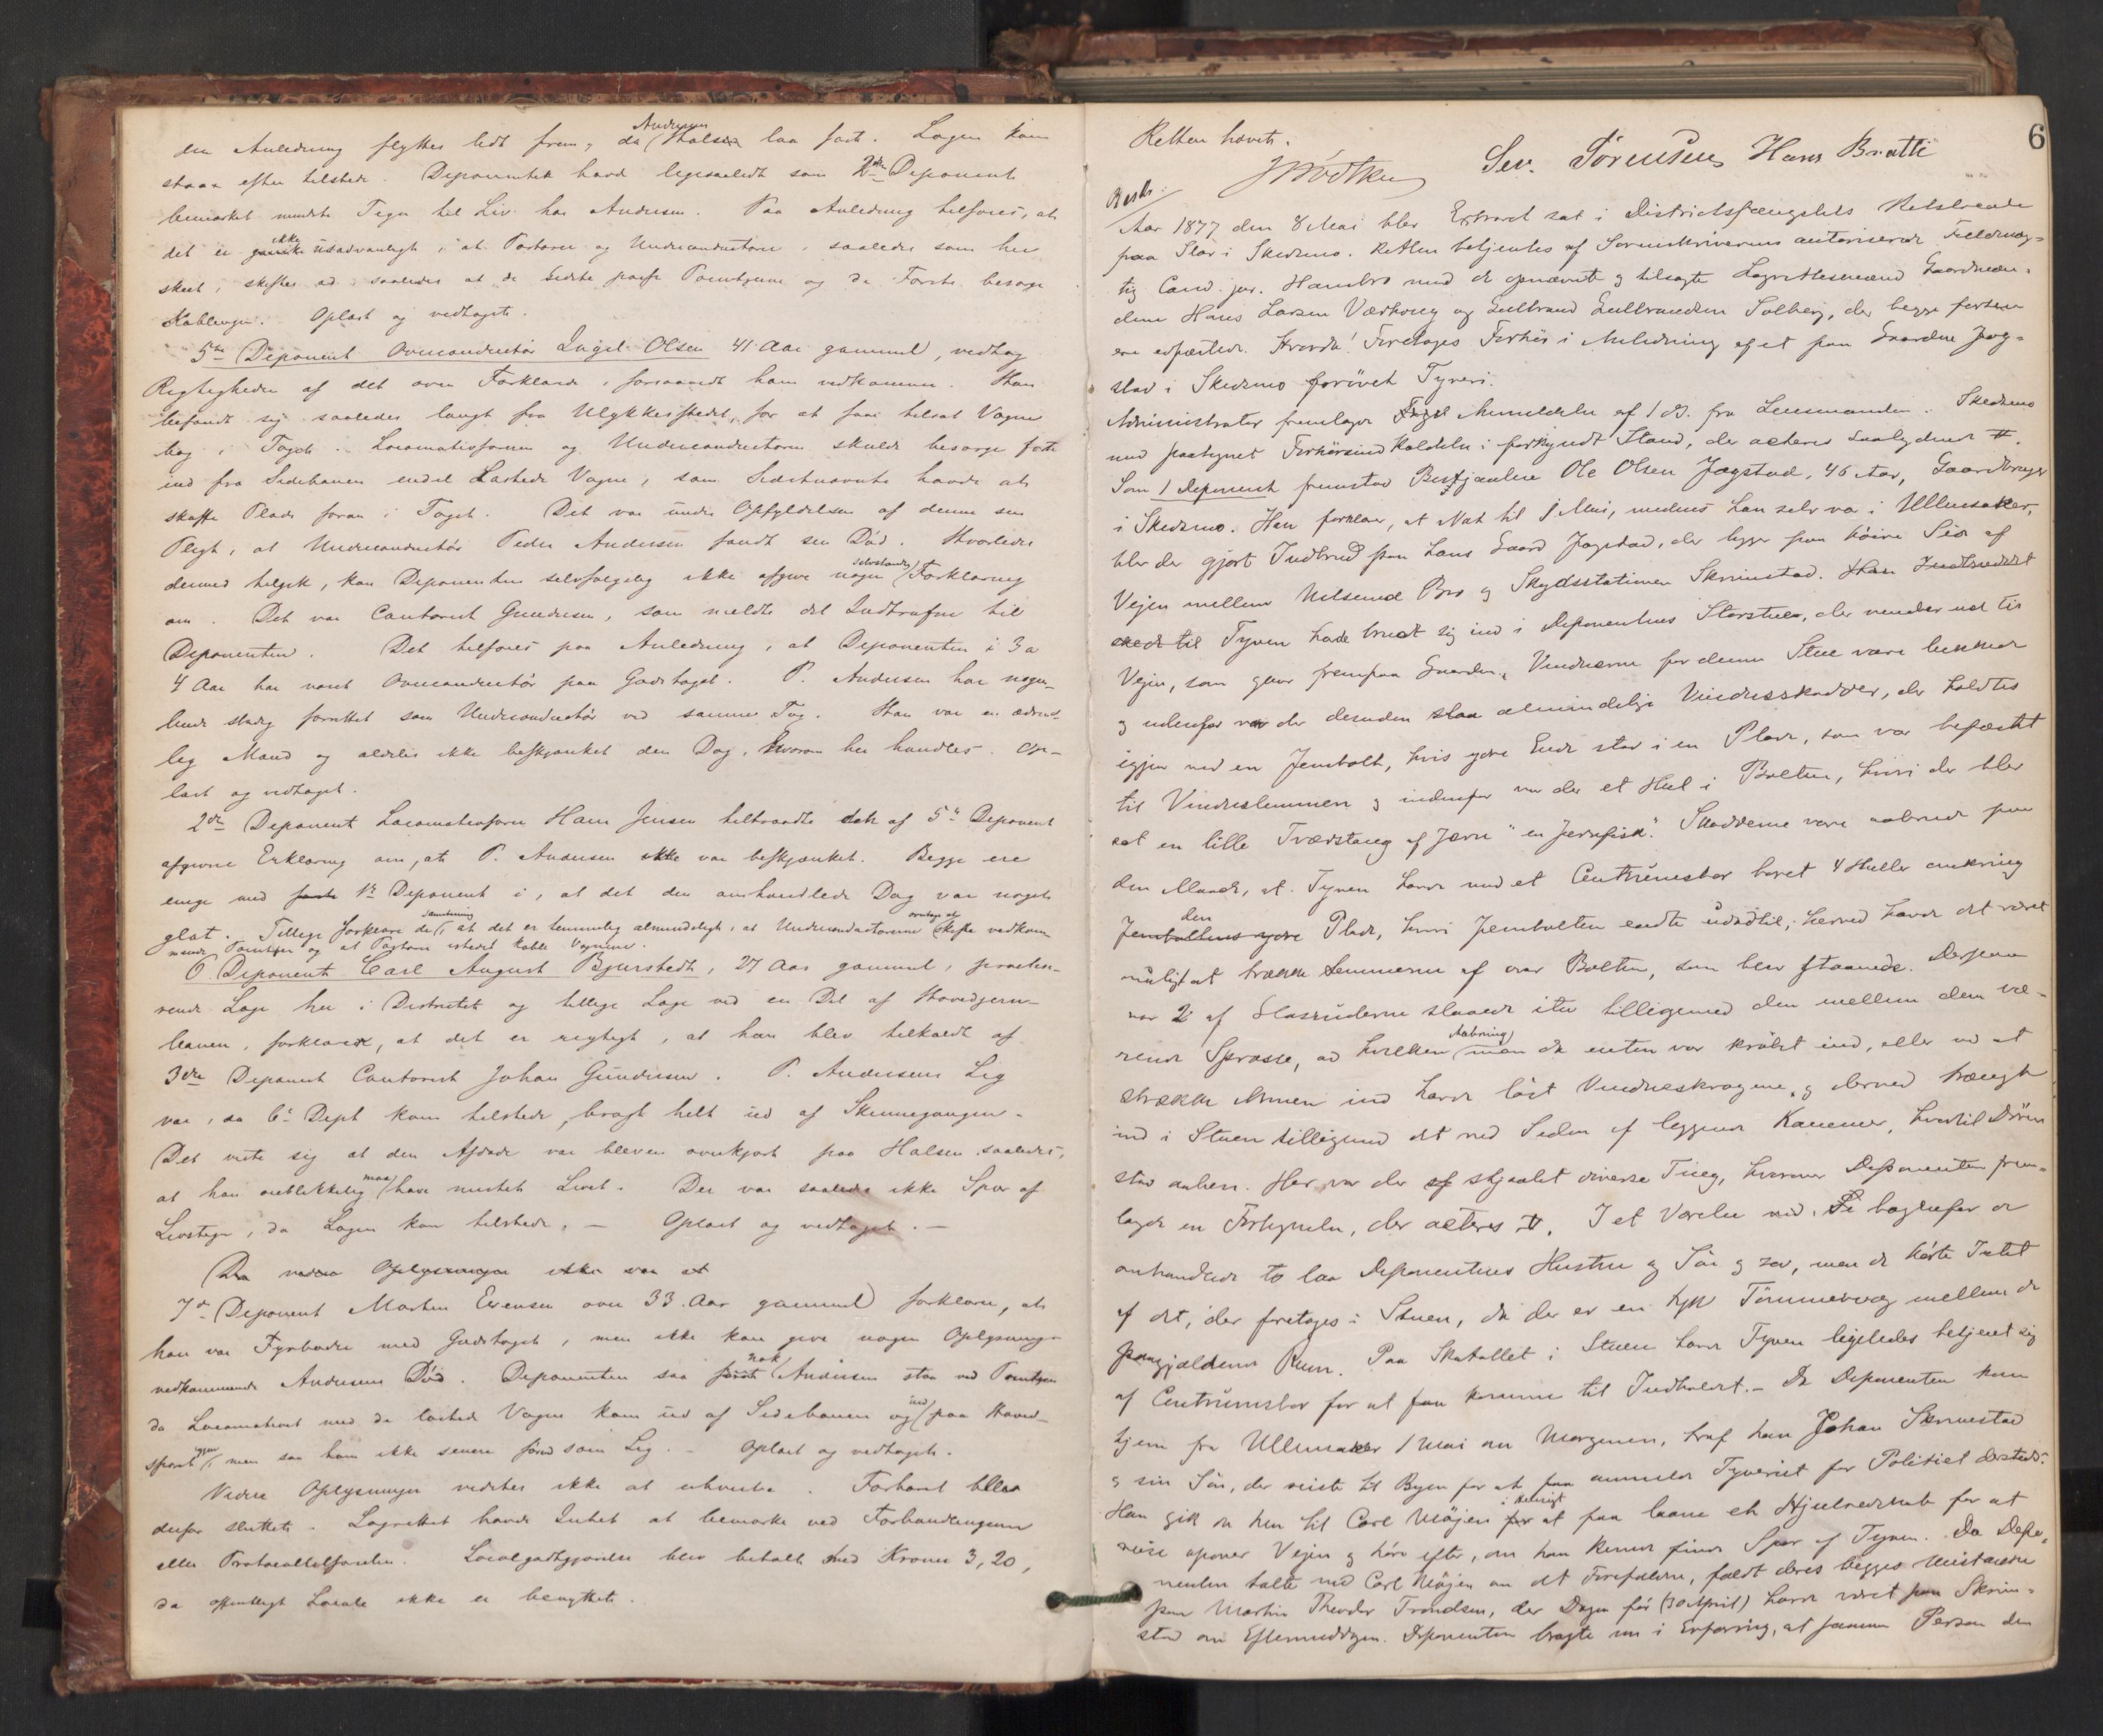 den Anledning flyttes lidt frem, da Andersens Hals laa fast. Lægen kom
straax efter tilstede. Deponentet havde ligesaalidt som 2den Deponent
bemærket mindste Tegn til Liv hos Andersen. Paa Anledning tilføies, at
det er ikke usædvanligt, at Portører og Underconductører, saaledes som her
skeet, skiftes ad, saaledes at de Sidste passe Pointsene og de Første besørge
Koblingen. Oplæst og vedtaget.
5te Deponent Overconductør Engel Olsen 41 Aar gammel, vedtog
Rigtigheden af det oven Forklarede, forsaavidt ham vedkommer. Han
befandt sig saaledes langt fra Ulykkesstedet, for at faae tilsat Vogne
bag i Toget. Locomotivføreren og Underconductøren skulde besørgeført
ind fra Sidebanen endel Lastede Vogne, som Sidstnævnte havde at
skaffe Plads foran i Toget. Det var under Opfyldelsen af denne sin
Pligt, at Underconductør Peder Andersen fandt sin Død. Hvorledes
dermed tilgik, kan Deponenten selvfølgelig ikke afgive nogen selvstændig Forklaring
om. Det var Contorist Gundersen, som meldte det Indtrufne til
Deponenten. Det tilføies paa Anledning, at Deponenten i 3 a
4 Aar har været Overconductør paa Godstoget. P. Andersen har nogen-
lunde stadig forrettet som Underconductør ved samme Tog. Han var en ædrue-
lig Mand og aldeles ikke beskjænket den Dag, hvorom her handles. Op-
læst og vedtaget.
2den Deponent Locomotivfører Hans Jensen tiltraadte det af 5te Deponent
afgivne Erklæring om, at P. Andersen ikke var beskjænket. Begge ere
enige med 1ste Deponent i, at det den omhandlede Dag var noget
glat. Tillige forklare de samstemmig, at det er temmelig almindeligt, at Underconductørerne overtage at skifte vedkom-
mende Pointser og at Portøren istedet koble Vognene.
6 Deponent Carl August Bjurstedt, 27 Aar gammel, practise-
rende Læge her i Districtet og tillige Læge ved en Del af Hovedjern-
banen, forklarede, at det er rigtigt, at han blev tilkaldt af
3die Deponent Contorist Johan Gundersen. P. Andersens Lig
var, da 6te Dept kom tilstede, bragt helt ud af Skinnegangen.
Det viste sig at den Afdøde var bleven overkjørt paa Halsen saaledes,
at han øieblikkelig maa have mistet Livet. Der var saaledes ikke Spor af
Livstegn, da Lægen kom tilstede. — Oplæst og vedtaget. —
Da videre Oplysninger ikke var at
7de Deponent Morten Evensen over 33 Aar gammel forklarer, at
han var Fyrbøder med Godstoget, men ikke kan give nogen Oplysninger
vedkommende Andersens Død. Deponenten saa nok Andersen staa ved Pointsen
da Locomotivet med de lastede Vogne kom ud af Sidebanen og ind paa Hoved-
sporet igjen, men saa ham ikke senere førend som Lig. — Oplæst og vedtaget.
Videre Oplysninger vidstes ikke at erhverve. Forhøret blev
derfor sluttet. Lagrettet havde Intet at bemærke ved Forhandlingerne
eller Protocoltilførselen. Localgodtgjørelse blev betalt med Kroner 3,20,
da offentligt Locale ikke er benyttet.
6
Retten hævet.
Sev. Sørensen Hans Bratli
Aar 1877 den 8 Mai blev Extraret sat i Districtsfængslets Retslocale
paa Slor i Skedsmo. Retten betjentes af Sorenskriverens autoriserede Fuldmæg-
tig Cand. jur. Hambro med de opnævnte og tilsagte Lagrettesmænd Gaardmæn-
dene Hans Larsen Værhoug og Gulbrand Gulbrandsen Solberg, der begge forhen
ere edfæstede. Hvorda! Foretoges Forhør i Anledning af et paa Gaarden Jog-
stad i Skedsmo forøvet Tyveri.
Administrator fremlagde Anmeldelse af 1 ds. fra Lensmanden i Skedsmo
med paategnet Forhørsindkaldelse i forkyndt Stand, der acteres saalydende #.
Som 1 Deponent fremstod Bestjaalne Ole Olsen Jogstad, 46 Aar, Gaardbruger
i Skedsmo. Han forklarer, at Nat til 1 Mai, medens han selv var i Ullensaker,
blev der gjort Indbrud paa hans Gaard Jogstad, der ligger paa høire Side af
Vejen mellem Nitsund Bro og Skydsstationen Skrimstad. Han Indbruddet
skede til Tyven havde brudt sig ind i Deponentens Storstue, der vender ud til
Vejen, som gaar frempaa Gaarden. Vinduerne for denne Stue vare lukkede
og udenfor var der desuden slaa almindelige Vinduesskodder, der holdtes
igjen med en Jernbolt, hvis ydre Ende stod i en Plade, som var befæstet
til Vindueslemmen og indenfor var der et Hul i Bolten, hvori der blev
sat en lille Tværstang af Jern "en Jernfisk". Skodderne vare aabnede paa
den Maade, at Tyven havde med et Centrumsbor boret 4 Huller omkring
den Jernboltens ydre Plade, hvori Jernbolten endte udadtil; herved havde det været
muligt at trække Lemmerne af over Bolten, som blev staaende. Derpaa
var 2 af Glasruderne slaaede itu tilligemed den mellem dem væ-
rende Sprosse, ad hvilken Aabning man da enten var krøbet ind, eller ved at
strække Armen ind havde løst Vindueskrogene, og derved trængt
ind i Stuen tilligemed det ved Siden af liggende Kammer, hvortil Døren
stod aaben. Her var der stjaalet diverse Ting, hvorover Deponenten frem-
lagde en Fortegnelse, der acteres #. I et Værelse ved Si bagenfor de
omhandlede to laa Deponentens Hustru og Søn og sov, men de hørte Intet
af det, der foretoges i Stuen, da der er en tyk Tømmervæg mellem de
paagjældende Rum. Paa Skatollet i Stuen havde Tyven ligeledes betjent sig
af Centrumsbor for at faa komme til Indholdet. — Da Deponenten kom
hjem fra Ullensaker 1 Mai om Morgenen, traf han Johan Skrimstad
og sin Søn, der reiste til Byen for at faa anmeldt Tyveriet for Politiet dersteds.
Han gik da hen til Carl Møjen i Hensigt at faa laane et Hjulredskab for at
reise opover Vejen og høre efter, om han kunde finde Spor af Tyven. Da Depo-
nenten talte med Carl Møjen om det Forefaldne, faldt deres begges Mistanke
paa Martin Theodor Trondsen, der Dagen før (30 April) havde været paa Skrim-
stad om Eftermiddagen. Deponenten bragte nu i Erfaring, at samme Person den